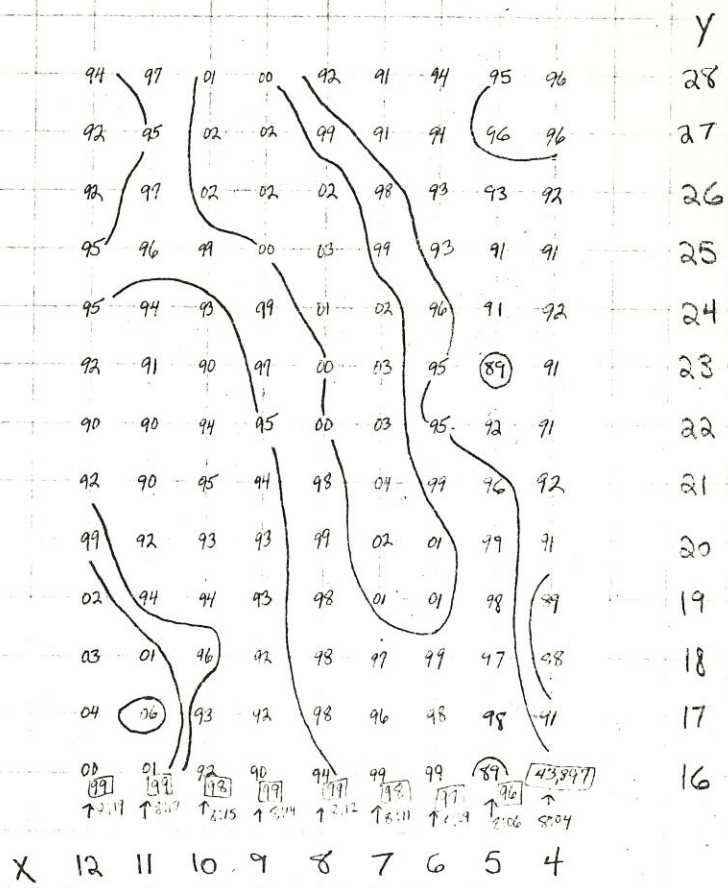 Y
94 97 01 00 92 91 94 95 96 28
92 95 02 02 99 91 94 96 96 27
92 97 02 02 02 98 93 93 92 26
95 96 99 00 03 99 93 91 91 25
95 94 93 99 01 02 96 91 92 24
92 91 90 97 00 03 95 89 91 23
90 90 94 95 00 03 95 92 91 22
92 90 95 94 98 04 99 96 92 21
99 92 93 93 99 02 01 99 91 20
02 94 94 93 98 01 01 98 89 19
03 01 96 92 98 97 99 97 18
04 06 93 92 98 96 98 98 91 17
00 01 92 90 94 99 99 89 43,897 16
99 99 98 99 99 98 97 96
↑ ↑ ↑ 8:15 ↑ 8:14 ↑ ↑ 8:11 ↑ ↑ 8:06 ↑ 8:04
X 12 11 10 9 8 7 6 5 4